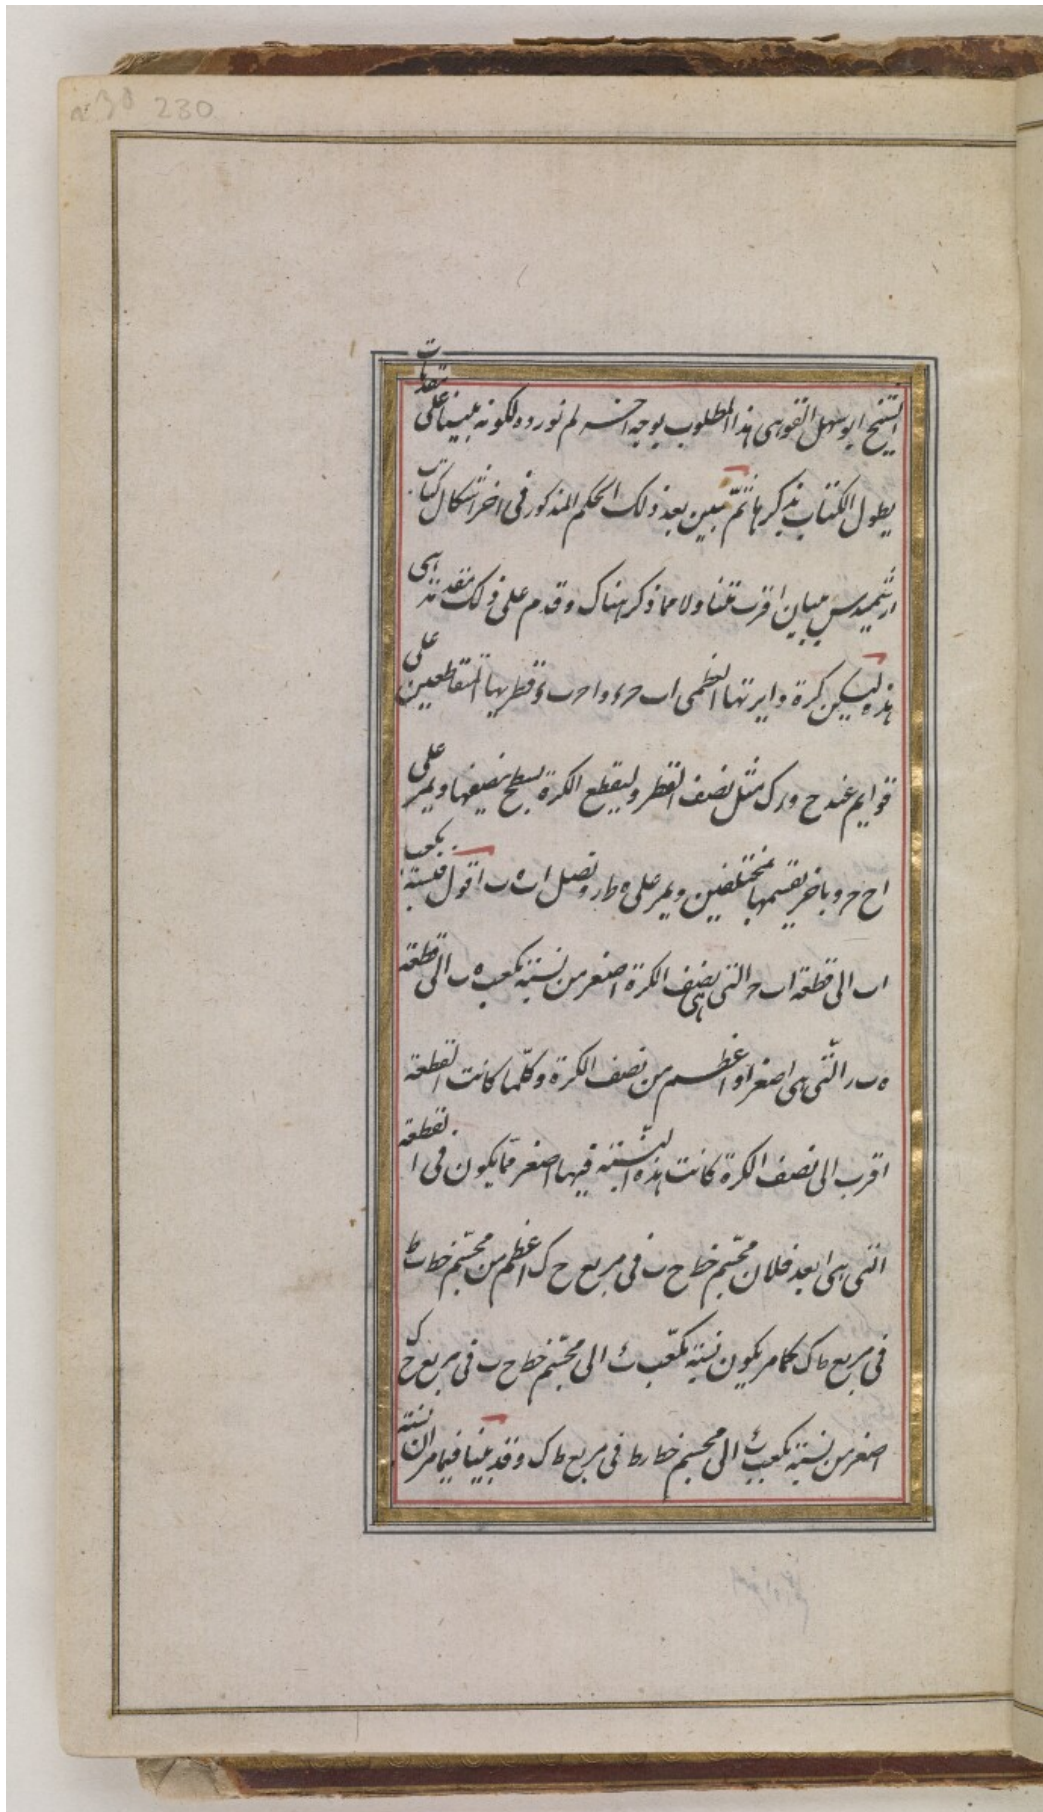 230
الشيخ ابو سهل القوهى هذا المطلوب بوجه اخر لم نورده لكونه مبينا على مقدمات
يطول الكتاب بذكرها ثم نبين بعد ذلك الحكم المذكور فى اخر اشكال كتاب
ارشميدس ببيان اقرب تناولا مما ذكر هناك وقدم على ذلك مقدمة هى
هذه ليكن كرة دايرتها العظمى اب حء و احـ بء قطريها المتقاطعين على
قوايم عند ح و ء ك مثل نصف القطر وليقطع الكرة بسطح ينصفها ويمر على
اح حـ وباخر يقسمها بمختلفين ويمر على ه ط ر ونصل اب ه ب اقول فنسبة مكعب
اب الى قطعة اب حـ التى هى نصف الكرة اصغر من نسبة مكعب ه ب الى قطعة
ه ب ر التى هى اصغر او اعظم من نصف الكرة وكلما كانت القطعة
اقرب الى نصف الكرة كانت هذه النسبة فيها اصغر مما يكون فى القطعة
التى هى ابعد فلان مجسم خط ح ب فى مربع ح ك اعظم من مجسم خط ب ط
فى مربع ط ك كما مر يكون نسبة مكعب الى مجسم خط ح ب فى مربع ح ك
اصغر من نسبة مكعب الى مجسم خط ط فى مربع ط ك وقد بينا فيما مر ان نسبة